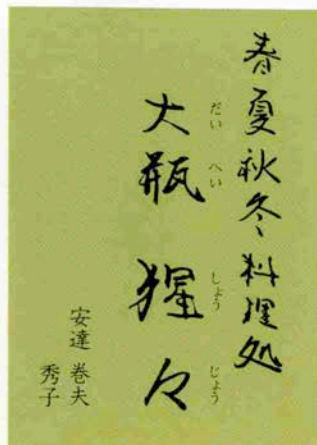 春夏秋冬料理処
大瓶猩々
だいへいしょうじょう
安達 巻夫
秀子